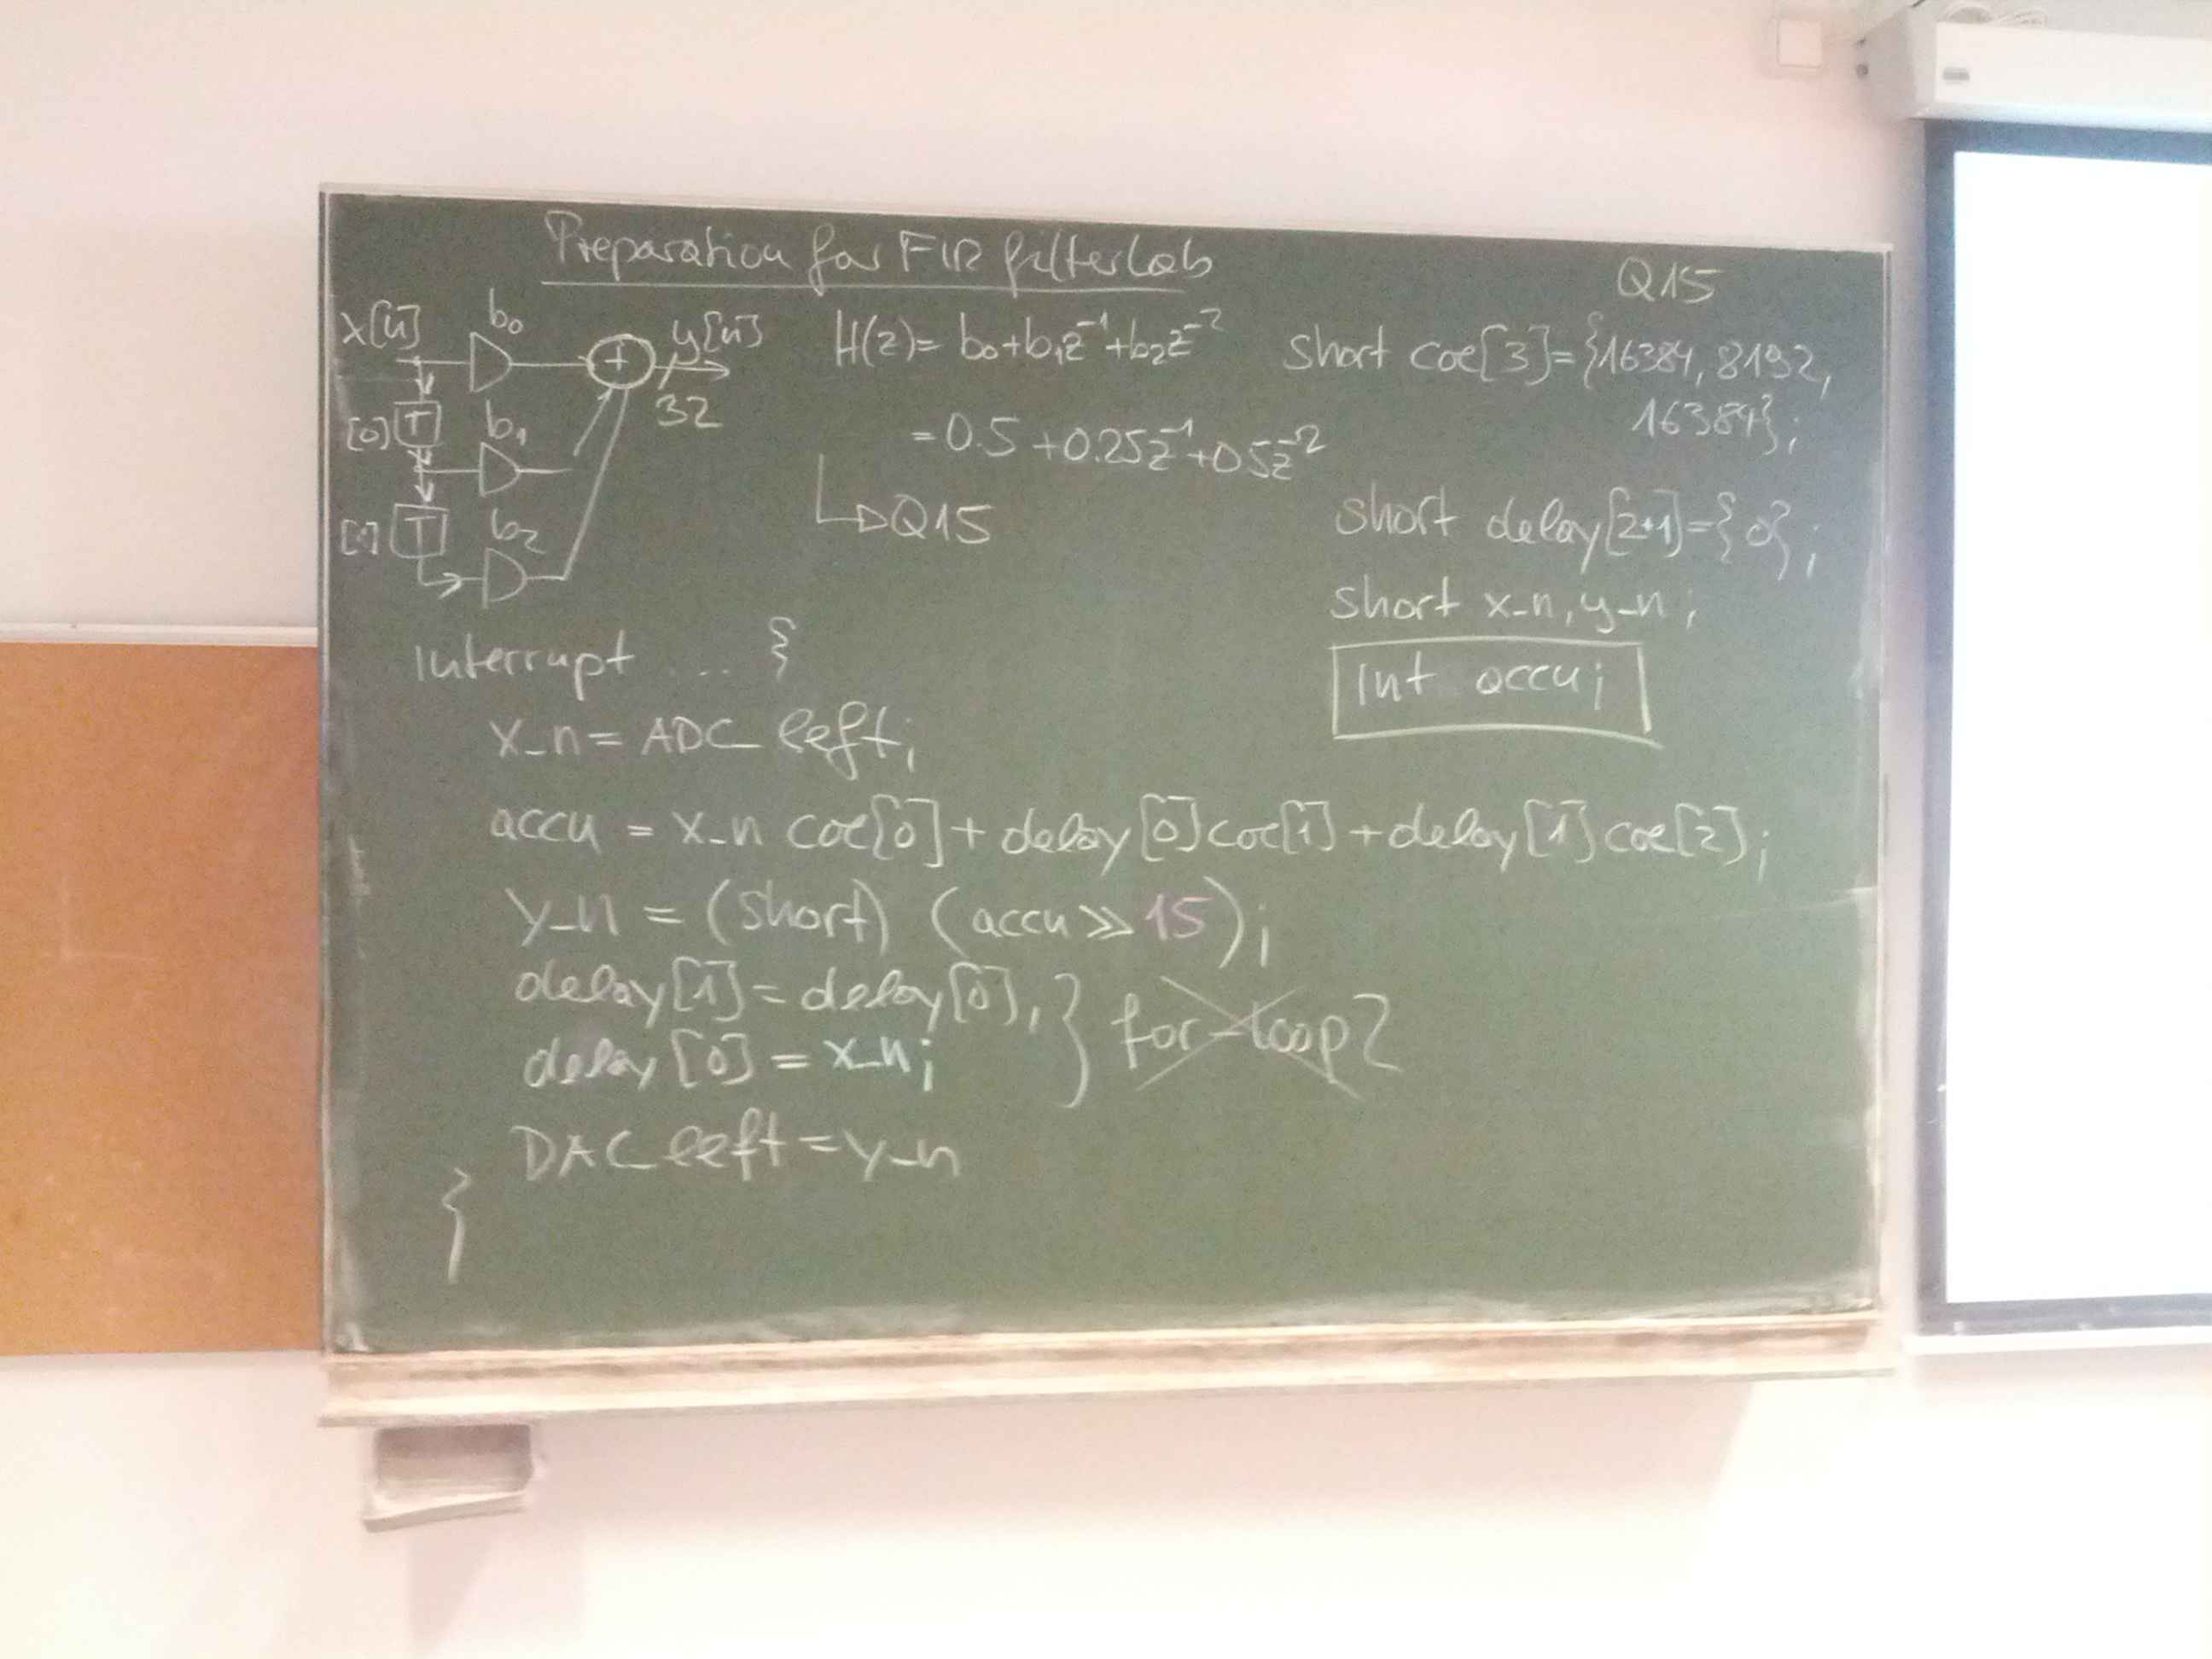 Preparation for FIR filterlab
Q15
x[n] b0 y[n]
32
[0] T b1
[1] T b2
H(z)= b0+b1z^-1+b2z^-2
=0.5+0.25z^-1+05z^-2
Q15
short coe[3]={16384, 8192,
16384};
short delay[2+1]={0};
short x_n, y_n;
int accu;
interrupt .... {
x_n = ADC_left;
accu = x_n coe[0]+delay[0]coe[1]+delay[1]coe[2];
y_n = (short) (accu>>15);
delay[1]=delay[0], } for-loop?
delay[0] = x_n;
DAC left = y_n
}